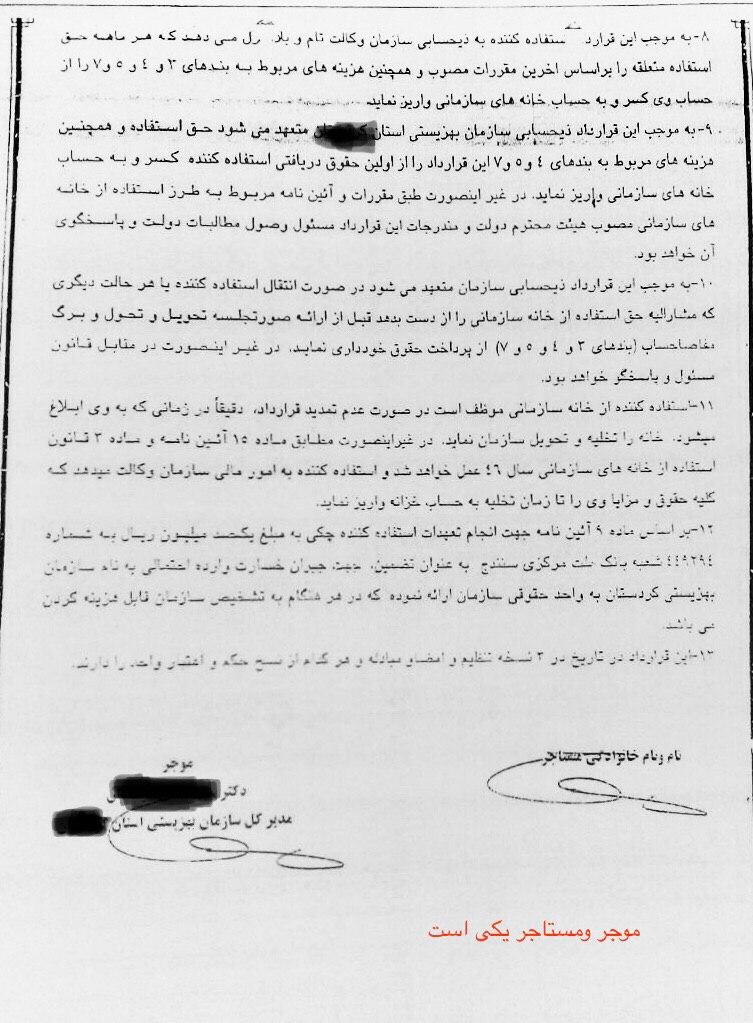 ۸-به موجب این قرارداد استفاده کننده به ذیحسابی سازمان وکالت تام و بلا عزل می دهد که هر ماهه حق
استفاده متعلقه را براساس اخرین مقررات مصوب و همچنین هزینه های مربوط به بندهای ۳ و ٤ و ۵ و۷ را از
حساب وی کسر و به حساب خانه های سازمانی واریز نماید.
۹-به موجب این قرارداد ذیحسابی سازمان بهزیستی استان متعهد می شود حق استفاده و همچنین
هزینه های مربوط به بندهای ٤ و۵ و۷ این قرارداد را از اولین حقوق دریافتی استفاده کننده کسر و به حساب
خانه های سازمانی واریز نماید. در غیر اینصورت طبق مقررات و آئین نامه مربوط به طرز استفاده از خانه
های سازمانی مصوب هیئت محترم دولت و مندرجات این قرارداد مسئول وصول مطالبات دولت و پاسخگوی
آن خواهد بود.
۱۰-به موجب این قرارداد ذیحسابی سازمان متعهد می شود در صورت انتقال استفاده کننده یا هر حالت دیگری
که مشارالیه حق استفاده از خانه سازمانی را از دست بدهد قبل از ارائه صورتجلسه تحویل و تحول و برگ
مفاصاحساب (بندهای ۳ و ٤ و ۵ و ۷) از پرداخت حقوق خودداری نماید. در غیر اینصورت در مقابل قانون
مسئول و پاسخگو خواهد بود.
۱۱-استفاده کننده از خانه سازمانی موظف است در صورت عدم تمدید قرارداد، دقیقاً در زمانی که به وی ابلاغ
میشود، خانه را تخلیه و تحویل سازمان نماید. در غیراینصورت مطابق ماده ۱۵ آئین نامه و ماده ۳ قانون
استفاده از خانه های سازمانی سال ٤٦ عمل خواهد شد و استفاده کننده به امور مالی سازمان وکالت میدهد که
کلیه حقوق و مزایا وی را تا زمان تخلیه به حساب خزانه واریز نماید.
۱۲-بر اساس ماده ۹ آئین نامه جهت انجام تعهدات استفاده کننده چکی به مبلغ یکصد میلیون ریال به شماره
٤٤۹۲۹٤ شعبه بانک ملت مرکزی سنندج به عنوان تضمین، جهت جبران خسارت وارده احتمالی به نام سازمان
بهزیستی کردستان به واحد حقوقی سازمان ارائه نموده که در هر هنگام به تشخیص سازمان قابل هزینه کردن
می باشد.
۱۳-این قرارداد در تاریخ در ۳ نسخه تنظیم و امضاو مبادله و هر کدام از نسخ حکم و اعتبار واحد را دارند.
نام ونام خانوادگی مستاجر
موجر
دکتر
مدیر کل سازمان بهزیستی استان
موجر ومستاجر یکی است